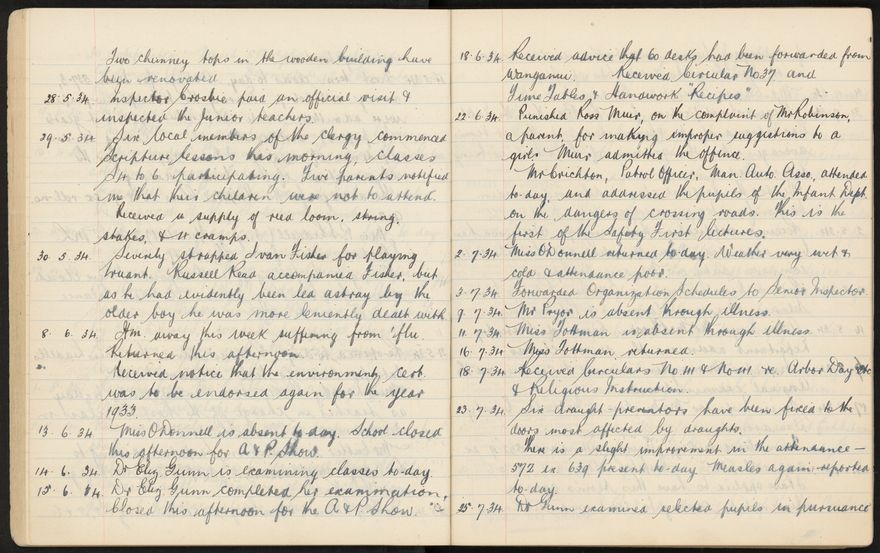 Two chimney tops in the wooden building have
been renovated
28.5.34. Inspector Crosbie paid an official visit &
inspected the Junior teachers.
29.5.34 Six local members of the clergy commenced
scripture lessons this morning, classes
S4 to 6 participating. Five parents notified
me that their children were not to attend.
Received a supply of red loom, string,
stakes, & 4 cramps.
30.5.34. Severely strapped Ivan Fisher for playing
truant. Russell Read accompanied Fisher, but
as he had evidently been led astray by the
older boy he was more leniently dealt with
8.6.34. Hm. away this week suffering from 'flu.
Returned this afternoon
Received notice that the environment cert.
was to be endorsed again for the year
1933.
13.6.34. Miss O'Donnell is absent to-day. School closed
this afternoon for A & P. Show.
14.6.34. Dr Eliz Gunn is examining classes to-day
15.6.34. Dr Eliz Gunn completed her examination,
Closed this afternoon for the A & P. Show.
18.6.34. Received advice that 60 desks had been forwarded from
Wanganui. Received Circular No 37 and
Time Tables & Handwork "Recipes"
22.6.34. Punished Ross Muir, on the complaint of Mr Robinson,
a parent, for making improper suggestions to a
girl. Muir admitted the offence.
Mr Crichton, Patrol Officer, Man. Auto. Asso, attended
to-day, and addressed the pupils of the Infant Dept
on the dangers of crossing roads. This is the
first of the Safety First lectures.
2.7.34 Miss O'Donnell returned to-day. Weather very wet &
cold & attendance poor.
3.7.34 Forwarded Organization Schedules to Senior Inspector.
9.7.34. Mr Pryor is absent through illness.
11.7.34. Miss Tottman is absent through illness.
16.7.34. Miss Tottman returned.
18.7.34 Received Circulars No & No re. Arbor Day etc
& Religious Instruction.
23.7.34. Six draught-preventors have been fixed to the
doors most affected by draughts.
There is a slight improvement in the attendance —
572 ex 639 present to-day Measles again reported
to-day.
25.7.34 Dr Gunn examined selected pupils in pursuance